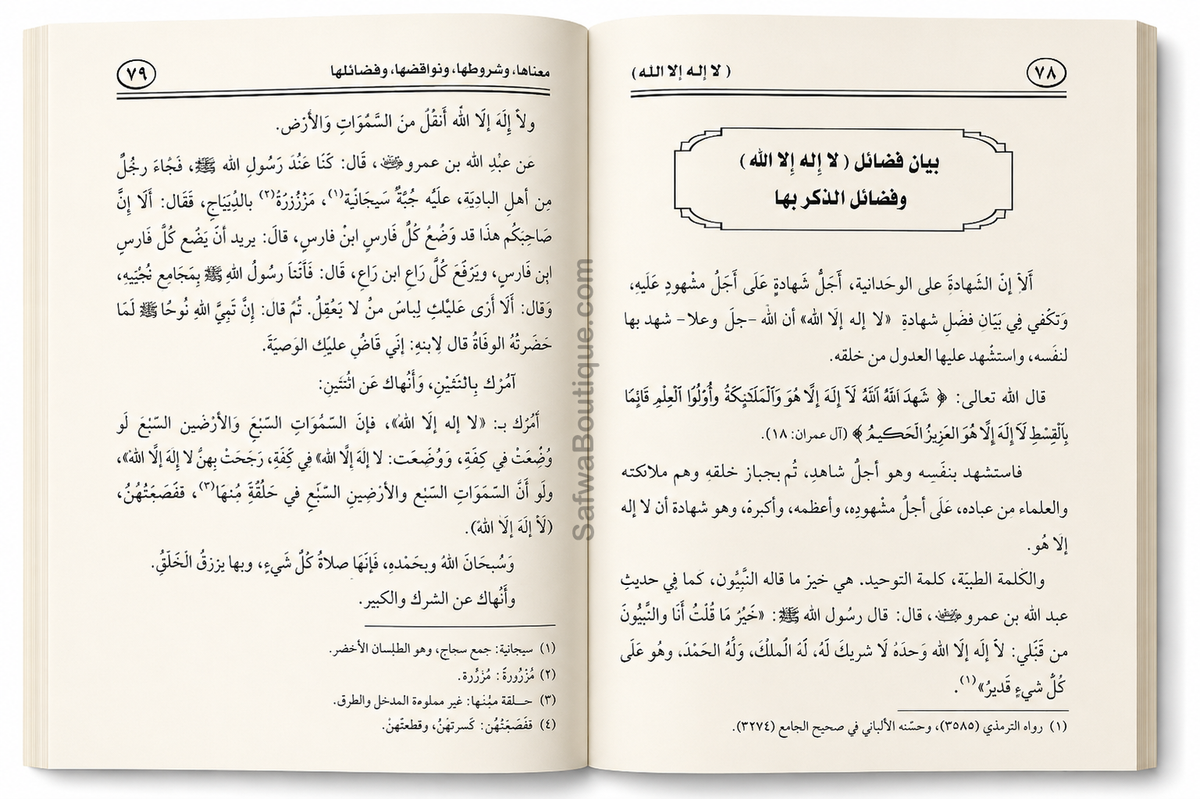 ( لا إله إلا الله )
٧٨
بيان فضائل ( لا إله إلا الله )
وفضائل الذكر بها
أَلَا إنّ الشهادةِ على الوحَدانية، أَجَلُّ شَهادةٍ عَلَى أَجَلُ مشْهودٍ عَلَيهِ،
وَتكْفي فِي بيَانِ فضَلِ شهادةِ «لا إله إلا الله» أن الله –جلَ وعلا– شهد بها
لنفسَه، واستشْهد عليها العدول من خلقه.
قال الله تعالى: ﴿ شَهِدَ اللهُ اَللهُ لَآ إِلَهَ إِلَّا هُوَ وَالْمَلَٰئِكَةُ وأُوْلُوا الْعِلْمِ قَائِمًا
بِالْقِسْطِ لَآ إِلَهَ إِلَّا هُوَ العَزِيزُ الحَكِيمُ ﴾ (آل عمران: ١٨).
فاستشهد بنفسَِه وهو أجلُ شاهدِ، ثُم بجباز خلقهِ وهم ملائكته
والعلماء مِن عباده، عَلَى أجلُ مشْهودِه، وأعظمه، وأكبرهَ، وهو شهادة أن لا إله
إلا هُو.
والكَلمة الطيبَّة، كلمة التوحيد. هي خيرَ ما قاله النَّبيُّون، كَما فِي حديثِ
عبد الله بن عمرو ، قال: قال رسُول الله ﷺ: «خَيْرُ مَا قُلَتُ أَنَا والنَّبيُّونَ
من قَبْلي: لآ إلَه إلَّا الله وَحدَهُ لَا شريكَ لَهُ، لَهُ الُملكُ، وَلَهُ الحَمْدَ، وهُو عَلَى
كُلُّ شيءٍ قَديرُ»(١).
(١) رواه الترمذي (٣٥٨٥)، وحسّنه الألباني في صحيح الجامع (٣٢٧٤).
معناها، وشروطها، ونواقضها، وفضائلها
٧٩
ولآ إلَهَ إلَّا الله أَنقُلُ منَ السَّمُوَاتِ وَالأَرْضِ.
عَن عبْدِ الله بن عمرو ، قَال: كَنَا عَنْدَ رَسُولِ الله ﷺ، فَجُاءَ رجُلٌ
مِن أهلِ البادِيَة، علَيْه جُبَّةٌ سَيجَانْية(١)، مَزْرُزرَةُ(٢) بالدِّيبَاجِ، فَقَال: أَلَا إنَّ
صَاحِبَكُم هذَا قد وَضُعُ كُلُّ فَارسٍ ابنْ فارسٍ، قالَ: يريد أنَ يَضْع كُلَّ فَارسٍ
ابن فَارسٍ، ويَرْفَعَ كُلَّ رَاعٍ ابن رَاعِ، قَال: فَأَتَنَا رسُولُ اللهِ ﷺ بِمَجَامِع نُجُبَيهِ،
وَقال: أَلَا أرَى عَليْكَ لِباسَ منُ لا يَعْقِلُ. ثُمُ قال: إنَّ تَميَّ اللهِ نُوحًا ﷺ لَمَا
حَضَرتْهُ الوفَاةُ قال لِابنهِ: إنَي قَاصُ عليْك الوَصيَةَ.
آمُرُك بِالنَتَيْنِ، وَأَنُهاك عَن اثْنتَينِ:
آمُرُك بـ: «لا إله إلَا اللهُ»، فإنَ السَّمُوَاتِ السَّبْعَ وَالأرْضَين السَّبْعَ لَو
وُضُعَتْ في كِفَةِ، وَوُضَعَت: لا إلهَ إلَّا الله» فِي كَفِّة، رَجَحَتْ بِهنَّ لَا إلَهَ إلَّا اللهُ»،
ولَو أَنَّ السّمَوَاتِ السَبْعِ والأَرْضِينِ السَّبْعِ في حَلْقُةٍ مُبْنهَا(٣)، قفَصَعَتْهُنْ،
(لَآ إلَهَ إلَا اللهَ).
وَسُبحَانَ اللهُ وبحَمْدهِ، فَإنَهَا صلاةُ كُلُ شَيءٍ، وبها يرزقُ الْخَلَقُّ.
وأَنُهاك عن الشرك والكبير.
(١) سيجانية: جمع سجاج، وهو الطلسان الأخضر.
(٢) مُزْرُورةَ : مُزْرُرة.
(٣) حـلقة مبُنـها: غير مملوءة المدخل والطرق.
(٤) ففَصَعَتُهُن: كَسرتهَنُ، وقطعتّهنْ.
SafwaBoutique.com